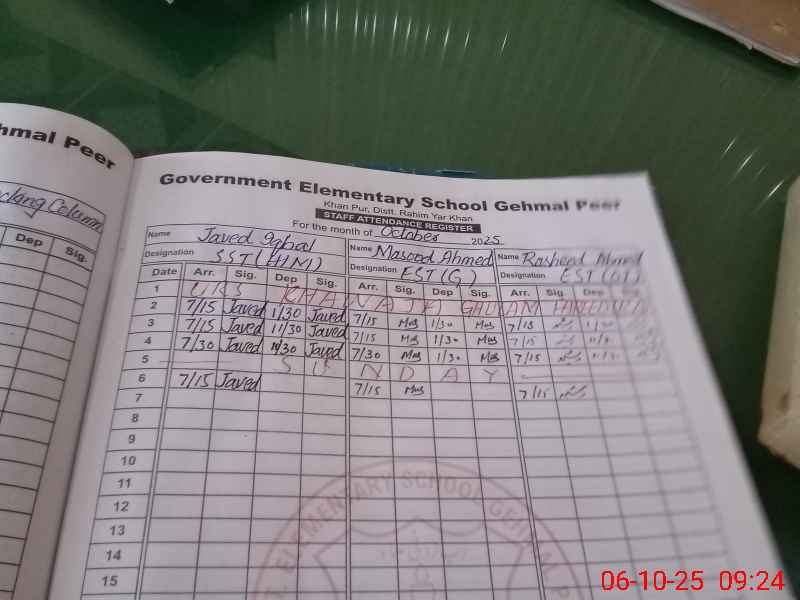 hmal Peer
Column
Dep Sig.
Government Elementary School Gehmal Peer
Khan Pur, Distt. Rahim Yar Khan
STAFF ATTENDANCE REGISTER
For the month of October 2025
Name Javed Iqbal Name Masood Ahmed Name Rasheed Ahmed
Designation SST (HM) Designation EST (G) Designation EST
Date Arr. Sig. Dep Sig. Arr. Sig. Dep Sig. Arr. Sig. Dep Sig.
1 URS KHAWAJA GHULAM FAREED
2 7/15 Javed 1/30 Javed 7/15 Mas 1/30 Mas 7/15
3 7/15 Javed 11/30 Javed 7/15 Mas 1/30 Mas 7/15
4 7/30 Javed Javed 7/30 Mas 1/30 Mas 7/15
5 SUNDAY
6 7/15 Javed 7/15 Mas 7/15
7
8
9
10
11
12
13
14
15
ELEMENTARY SCHOOL GEHMAL P
06-10-25 09:24